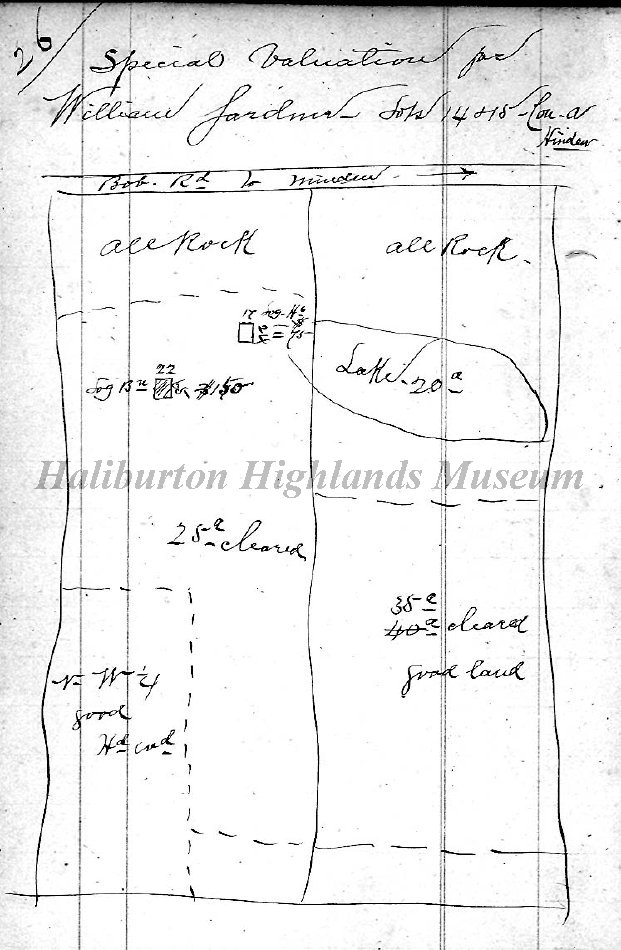 26
Special Valuation for
William Gardner - Lots 14 & 15 - Con. A
Minden
Bob. Rd to Minden →
all Rock
all Rock.
17 Log Hs
= 75
Lake 20 a
22
Log Bn $150
Haliburton Highlands Museum
25 a cleared
35 a
40 a cleared
good land
N W 1/4
good
Hd wd